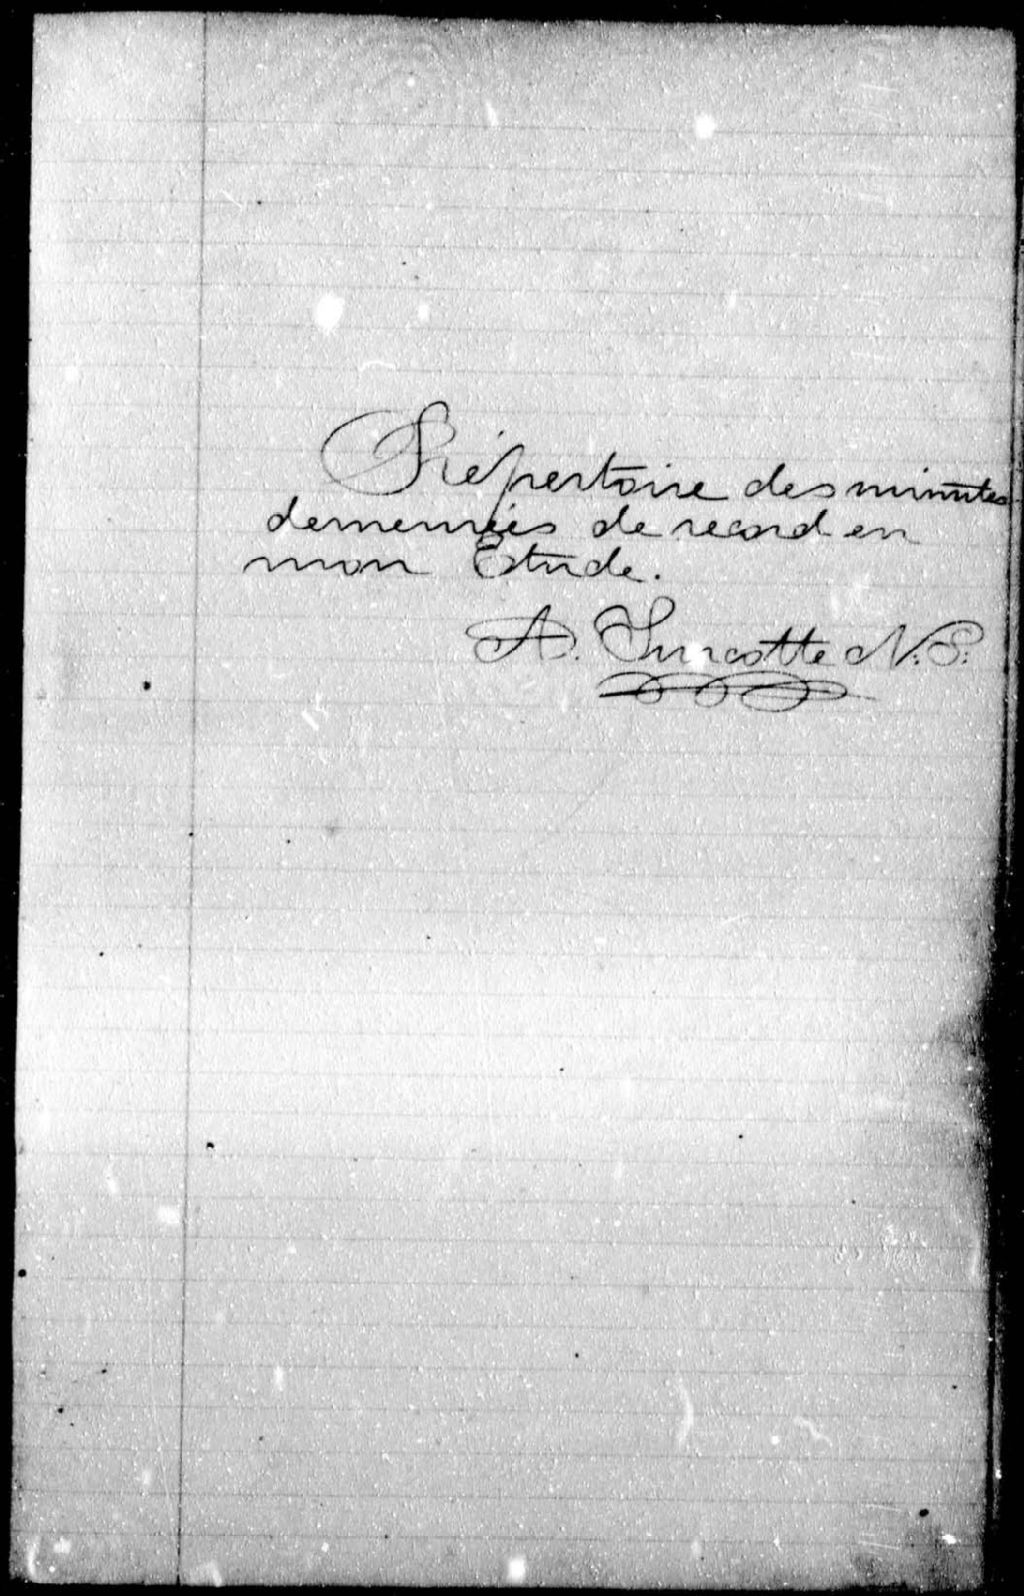 Répertoire des minutes
demeurées de record en
mon Etude.
A. Turcotte N:P: